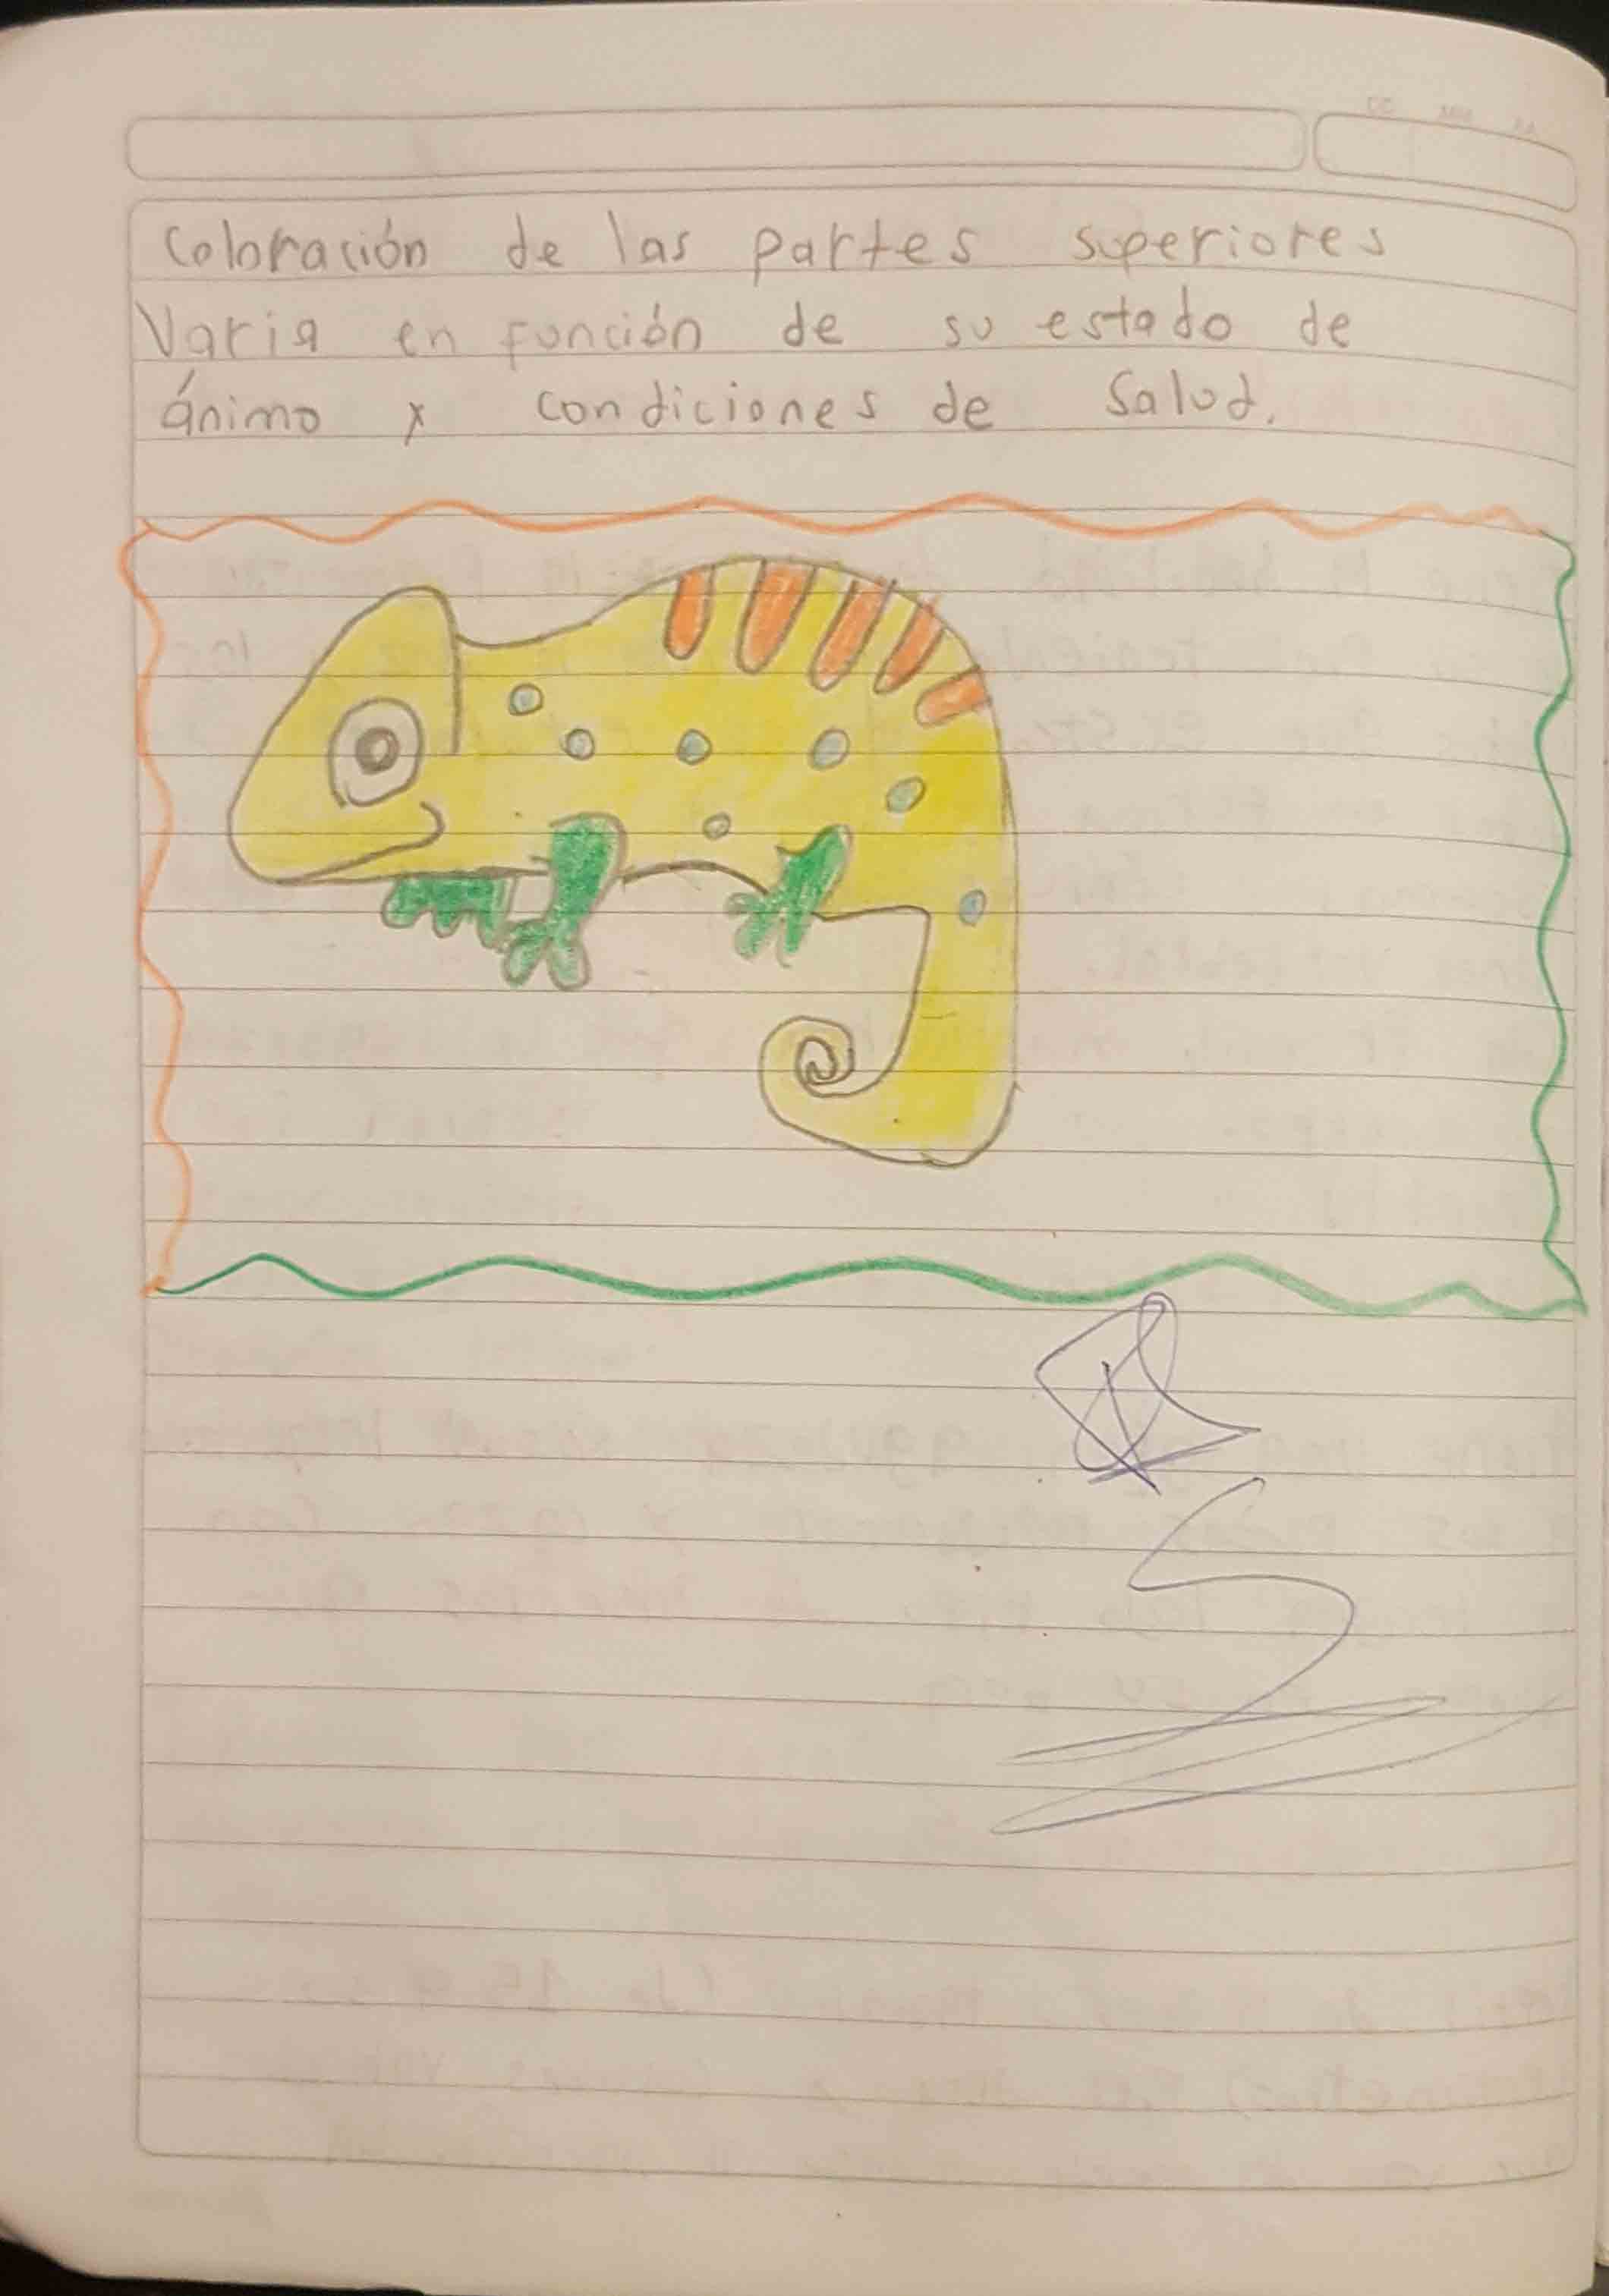 Coloración de las partes superiores
Varia en función de su estado de
ánimo y condiciones de Salud.